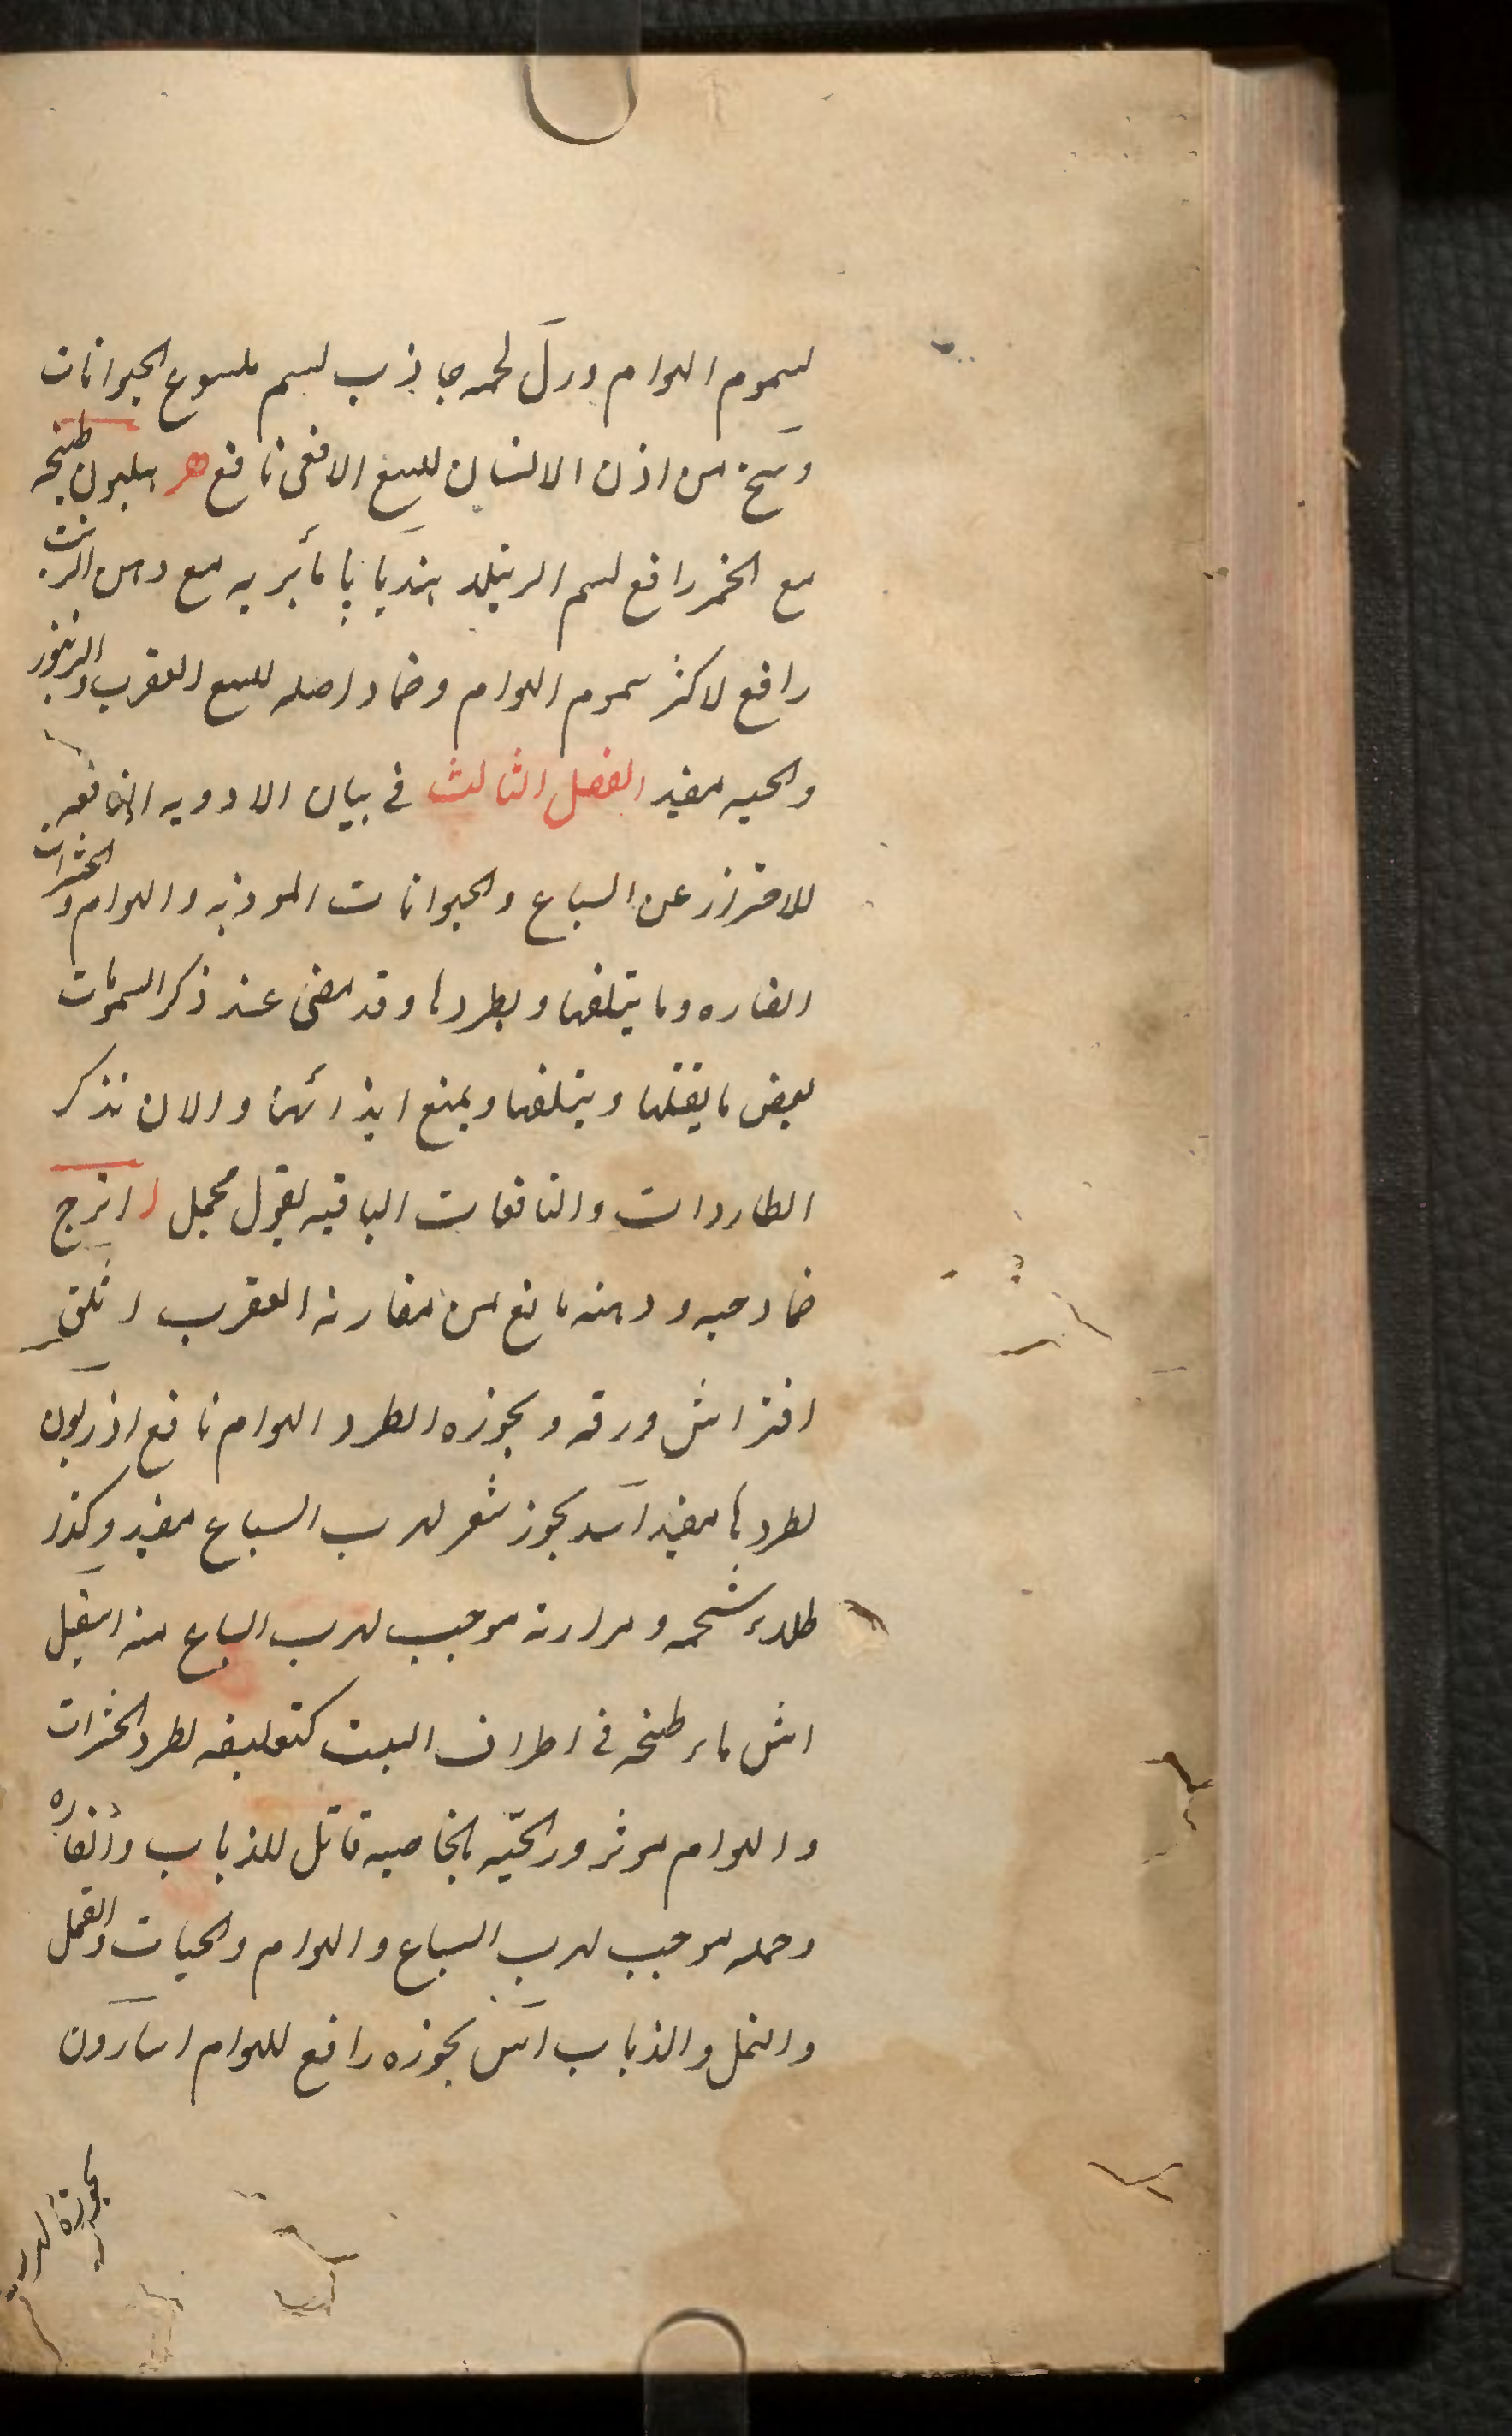 لسموم الهوام ورل لحمه جاذب لسم ملسوع الحيوانات
وسخ من اذن الانسان للسع الافعى نافع هـ هليون طبخه
مع الخمر رافع لسم الرتيلا هنديا با مأبريه مع دهن الزيت
رافع لاكثر سموم الهوام وضماد اصله للسع العقرب والزنبور
والحيه مفيد الفصل الثالث في بيان الادويه النافعه
للاحتراز عن السباع والحيوانات الموذيه والهوام والحشرات
الضاره وما يتلفها ويطردها وقد مضى عند ذكر السمومات
بعض ما يقتلها ويتلفها ويمنع ايذائها والان نذكر
الطاردات والنافعات الباقيه بقول مجمل ا اترج
ضماد حبه ودهنه مانع من مقاربه العقرب اثلق
افتراش ورقه وبخوره لطرد الهوام نافع اذريون
لطردها مفيد اسد بخور شعر لهرب السباع مفيد وكذا
طلاء شحمه ومرارته موجب لهرب السباع منه اسقيل
اش ماء طبخه في اطراف البيت كتعليقه لطرد الحشرات
والهوام موثر ورائحيه بالخاصيه قاتل للذباب والفاره
وحمله موجب لهرب السباع والهوام والحيات والقمل
والنمل والذباب اس بخوره رافع للهوام اسارون
بخوره